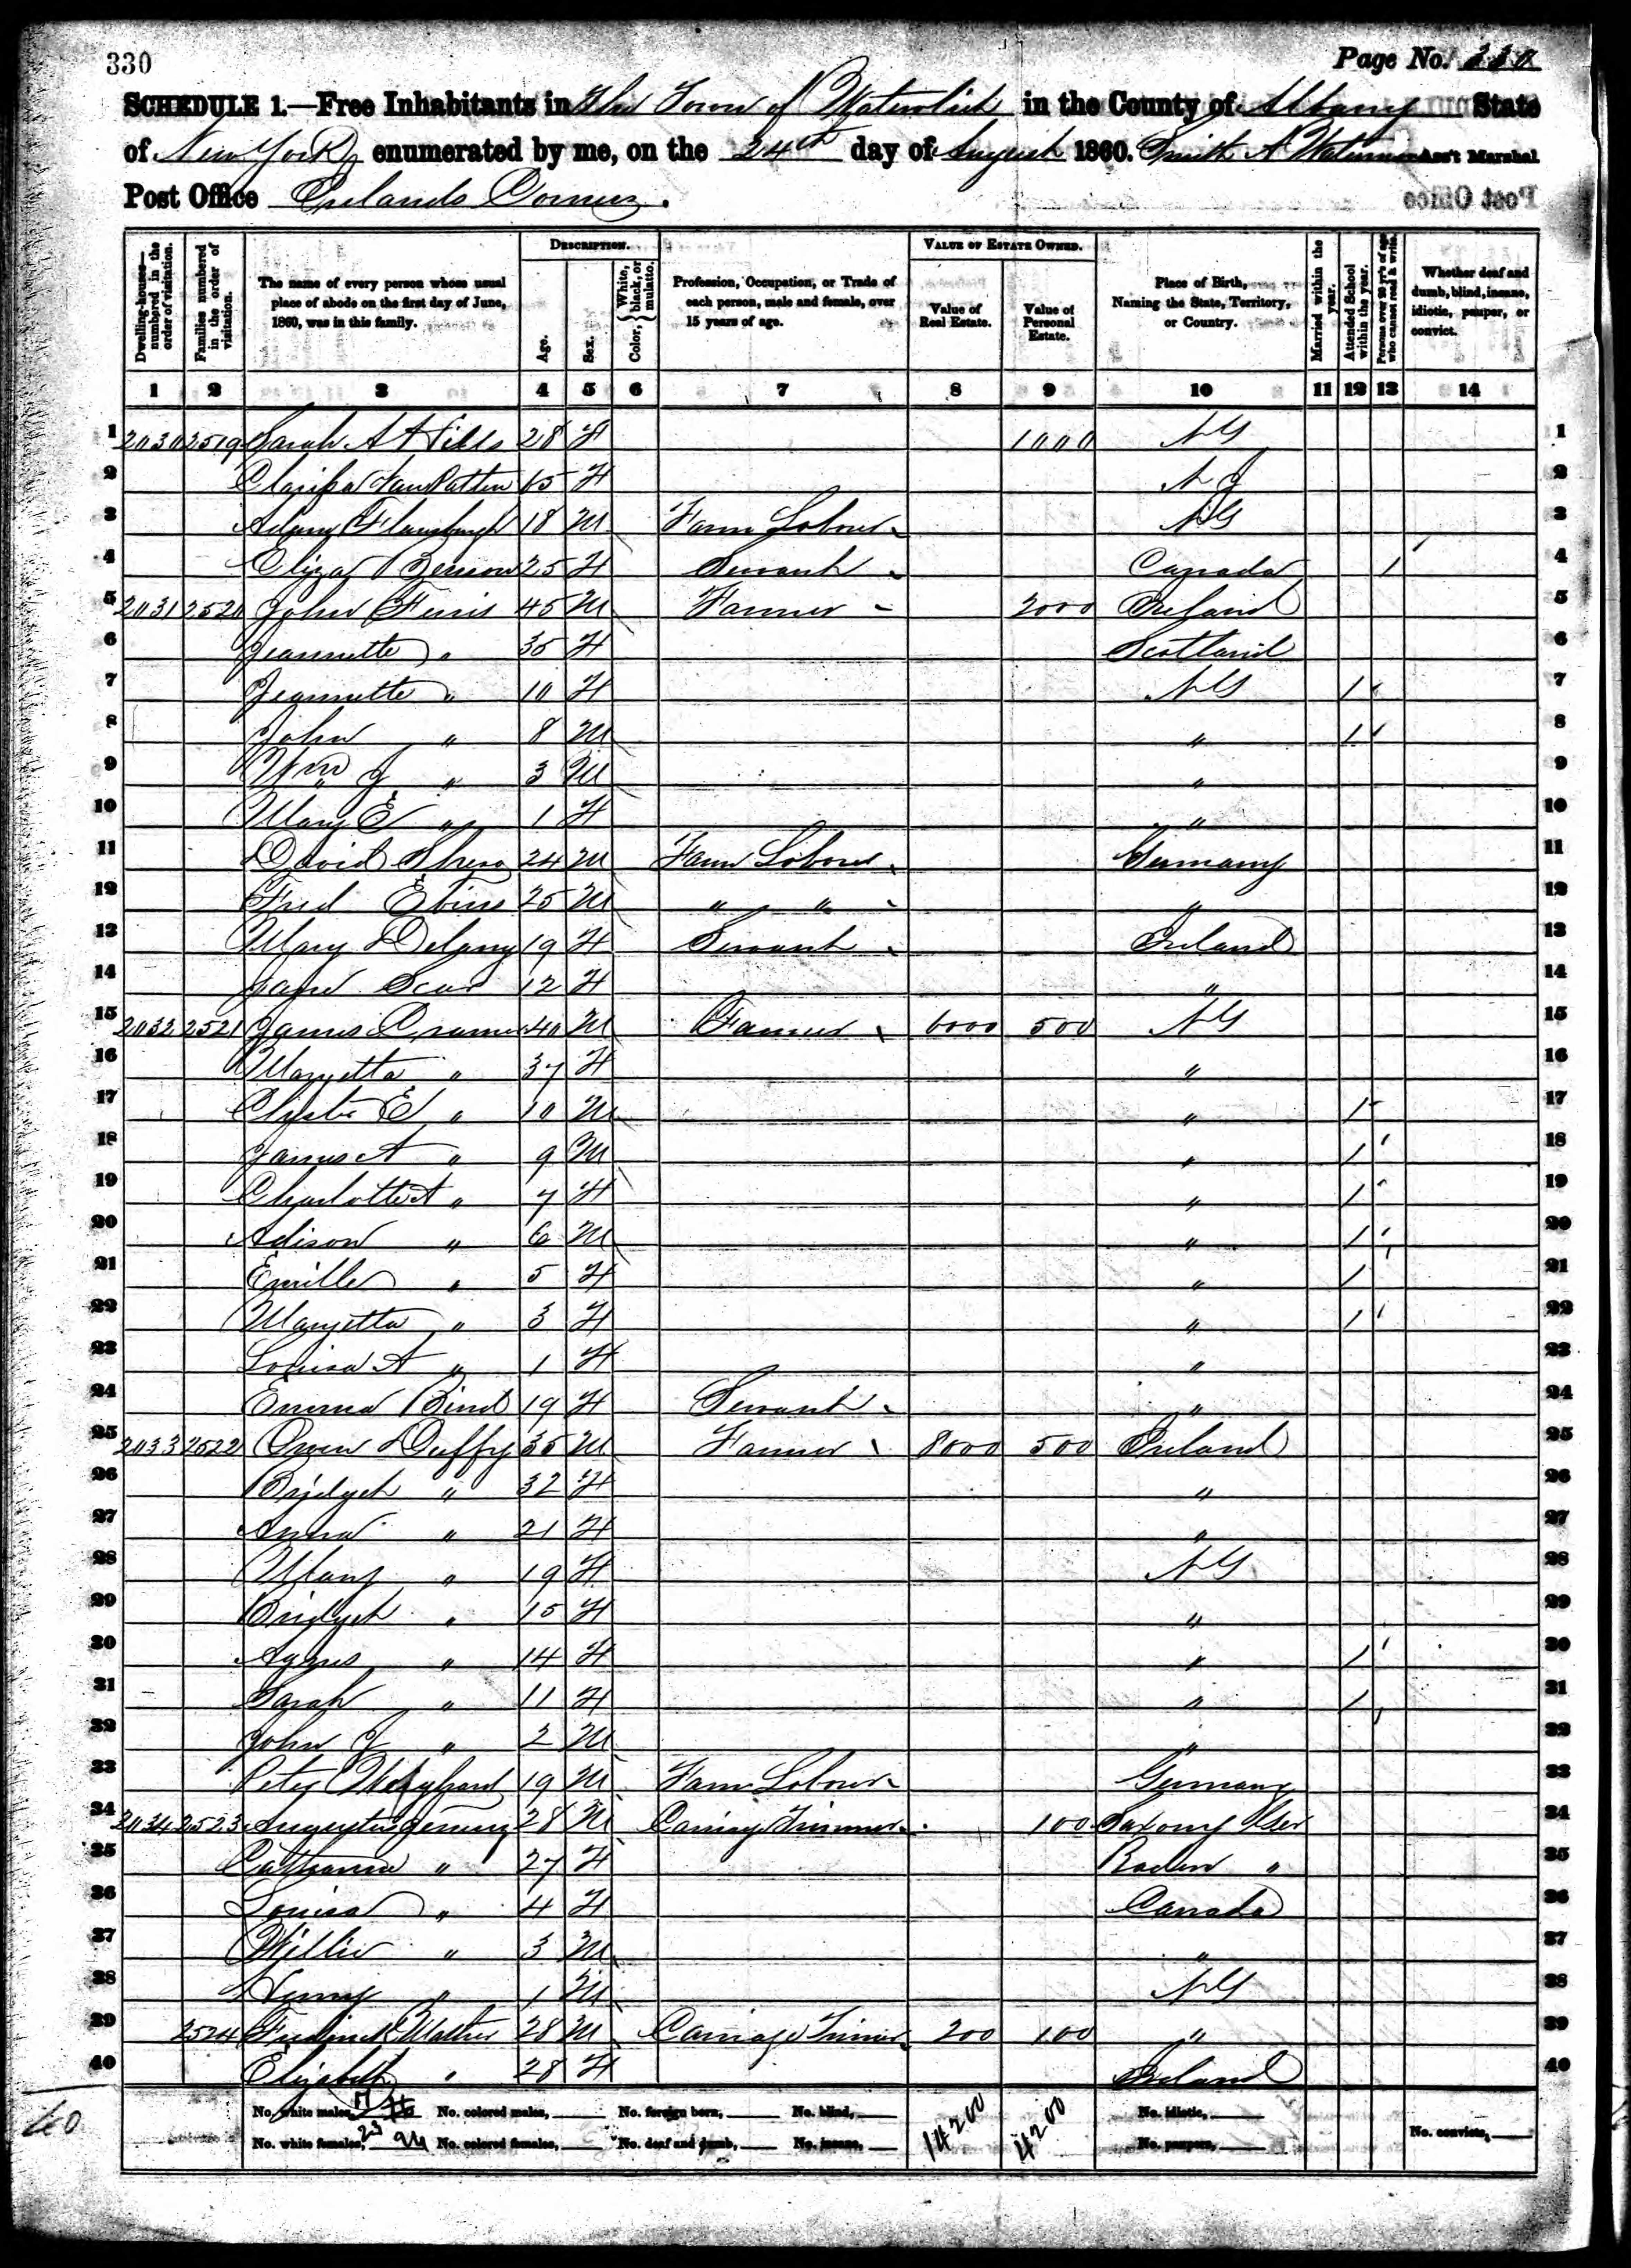 330 Page No. 330
SCHEDULE 1.—Free Inhabitants in The Town of Watervliet in the County of Albany State
of New York enumerated by me, on the 24th day of August 1860. Smith A Waterman Ass't Marshal
Post Office Irelands Corners.
Dwelling-houses—numbered in the order of visitation.
Families numbered in the order of visitation.
The name of every person whose usual place of abode on the first day of June, 1860, was in this family.
DESCRIPTION.
Age.
Sex.
Color, { White, black, or mulatto.
Profession, Occupation, or Trade of each person, male and female, over 15 years of age.
VALUE OF ESTATE OWNED.
Value of Real Estate.
Value of Personal Estate.
Place of Birth, Naming the State, Territory, or Country.
Married within the year.
Attended School within the year.
Persons over 20 y'rs of age who cannot read & write.
Whether deaf and dumb, blind, insane, idiotic, pauper, or convict.
1 2 3 4 5 6 7 8 9 10 11 12 13 14
1 2030 2519 Sarah A 28 F 1000 NY 1
2 Clarissa VanPatten 65 F N J 2
3 18 M Farm Labour NY 3
4 Eliza 25 F Servant Canada 1 4
5 2031 2520 John Ferris 45 M Farmer 2000 Ireland 5
6 Jeannette " 35 F Scotland 6
7 Jeannette " 10 F NY 1 7
8 John " 8 M " 1 8
9 Wm J " 3 M " 9
10 Mary E " 1 F " 10
11 David 24 M Farm Labour Germany 11
12 Fred 25 M " " " 12
13 Mary Delany 19 F Servant Ireland 13
14 12 F " 14
15 2032 2521 James Cramer 40 M Farmer 6000 500 NY 15
16 Maryetta " 37 F " 16
17 E " 10 M " 1 17
18 James A " 9 M " 1 18
19 Charlotte A " 7 F " 1 19
20 Adison " 6 M " 1 20
21 " 5 F " 1 21
22 Maryetta " 3 F " 1 22
23 Louisa A " 1 F " 23
24 Emma 19 F Servant " 24
25 2033 2522 Owen Duffy 35 M Farmer 8000 500 Ireland 25
26 Bridgeh " 32 F " 26
27 Anna " 21 F " 27
28 Mary " 19 F NY 28
29 Bridgeh " 15 F " 29
30 Agnes " 14 F " 1 30
31 Sarah " 11 F " 1 31
32 John J " 2 M " 32
33 Peter 19 M Farm Labour Germany 33
34 2034 2523 Augustus 28 M Carriage Trimmer 100 Saxony Ger 34
35 Catharine " 27 F Baden " 35
36 Louisa " 4 F Canada 36
37 Willie " 3 M " 37
38 Henry " 1 M NY 38
39 2524 28 M Carriage Trimer 200 100 " 39
40 Elizabeth " 28 F Ireland 40
40
No. white males, 17 No. colored males, No. foreign born, No. blind, 14200 4200 No. idiotic,
No. white females, 23 No. colored females, No. deaf and dumb, No. insane, No. paupers, No. convicts,